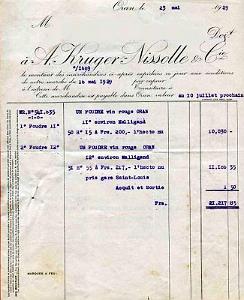 Oran, le 23 mai 1929
M
Doit
à A. Kruger-Nissolle & Cie
N°/1489
le montant des marchandises ci-après expédiées ce jour aux conditions
de notre marché du 16 mai 1929 par vapeur
à l'adresse de M
Cette marchandise est payable dans Oran valeur au 10 juillet prochain
UN FOUDRE vin rouge ORAN
1 Foudre 11°
11° environ Malligand
50 H° 15 à Frs. 200,- l'hecto nu
10,030
2° Foudre 12°
UN FOUDRE vin rouge ORAN
12° environ Malligand
à Frs. 217,- l'hecto nu
pris gare Saint-Louis
Acquit et Sortie
Frs.
21.217 85
MARQUES A FEU: